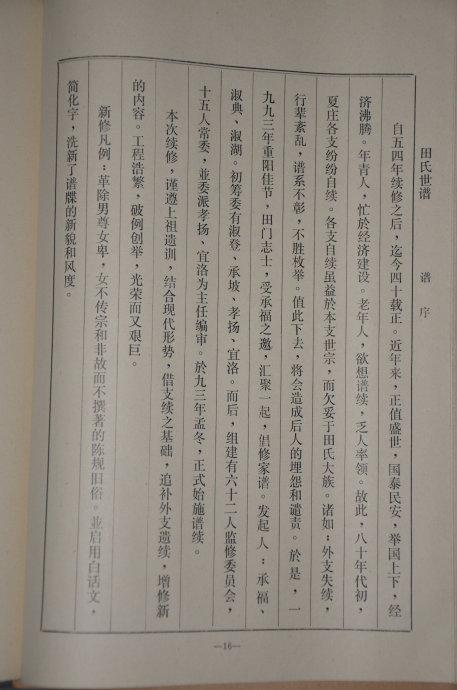 田氏世谱 谱序
自五四年续修之后，迄今四十载正。近年来，正值盛世，国泰民安，举国上下，经
济沸腾。年青人，忙於经济建设。老年人，欲想谱续，乏人率领。故此，八十年代初，
夏庄各支纷纷自续。各支自续虽益於本支世宗，而欠妥于田氏大族。诸如：外支失续，
行辈紊乱，谱系不彰，不胜枚举。值此下去，将会造成后人的埋怨和谴责。於是，一
九九三年重阳佳节，田门志士，受承福之邀，汇聚一起，倡修家谱。发起人：承福、
淑典、淑湖。初筹委有淑登、承坡、孝扬、宜洛。而后，组建有六十二人监修委员会，
十五人常委，並委派孝扬、宜洛为主任编审。於九三年孟冬，正式始施谱续。
本次续修，谨遵上祖遗训，结合现代形势，借支续之基础，追补外支遗续，增修新
的内容。工程浩繁，破例创举，光荣而又艰巨。
新修凡例：革除男尊女卑，女不传宗和非故而不撰著的陈规旧俗。並启用白话文，
简化字，洗新了谱牒的新貌和风度。
—16—